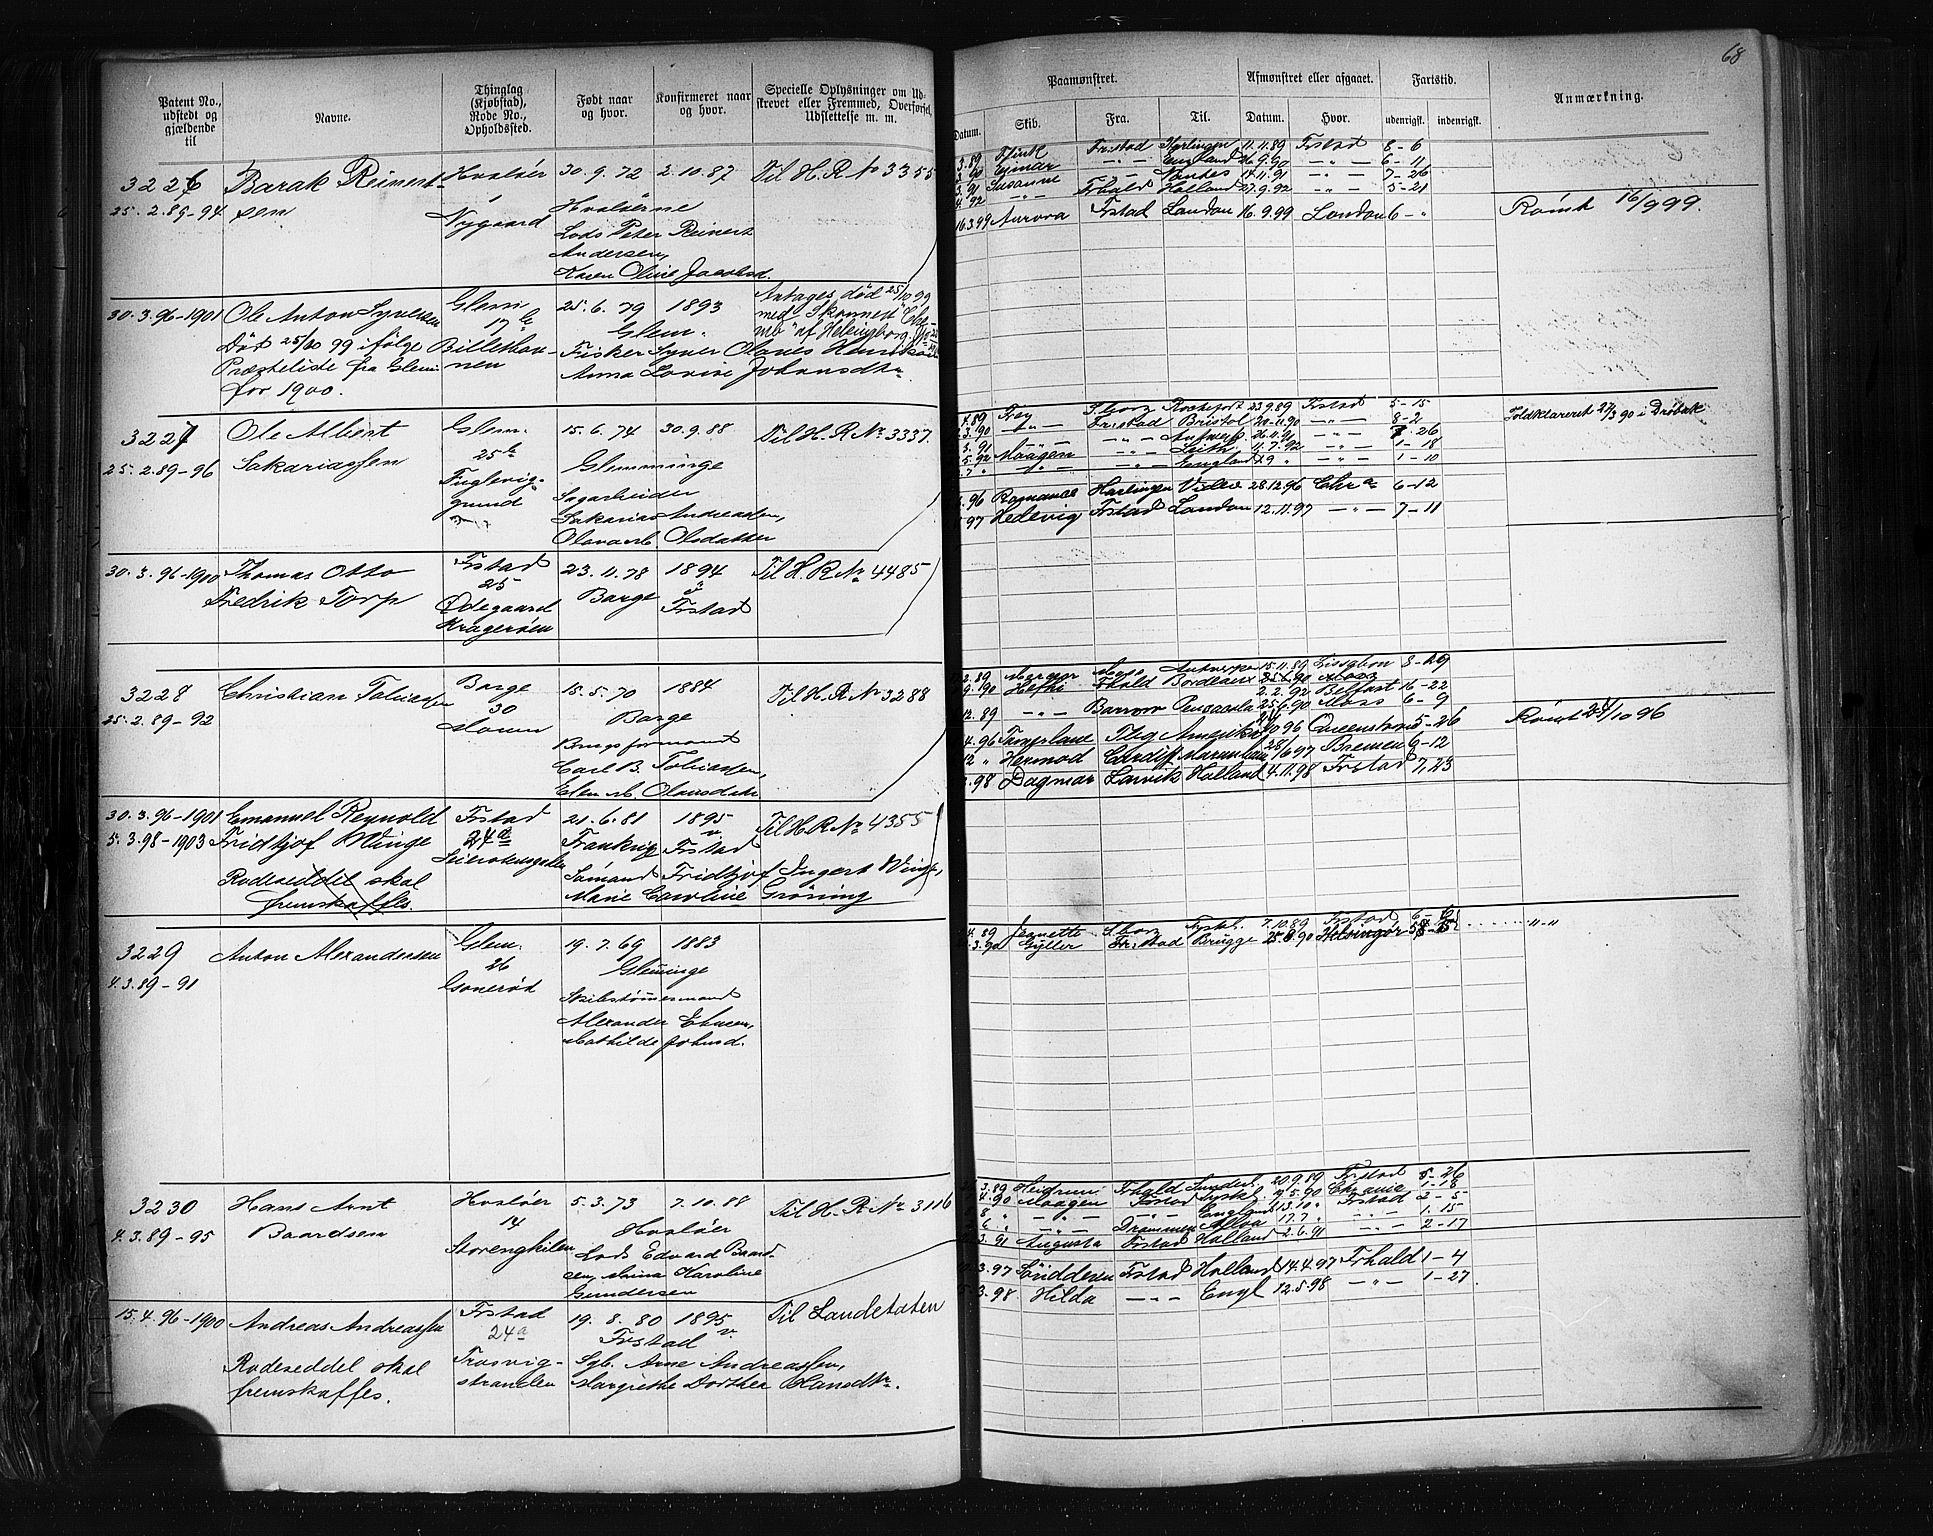 68
Patent No., udstedt og gjældende til
Navne.
Thinglag (Kjøbstad), Rode No., Opholdssted.
Født naar og hvor.
Konfirmeret naar og hvor.
Specielle Oplysninger om Udskrevet eller Fremmed, Overførsel, Udslettelse m. m.
Paamønstret.
Afmønstret eller afgaaet.
Fartstid.
Anmærkning.
Datum.
Skib.
Fra.
Til.
Datum.
Hvor.
udenrigsk.
indenrigsk.
3226
25.2.89-94
Barak Reinert-
sen
Hvaløer
1
Nygaard
30.9.72
2.10.87
Hvaløerne
Lods Peter Reinert
Andersen,
Karen Oline Jacobsd.
Til H.R. No 3355
3.89 Frstad Harlingen 11.11.89 Frstad 8-6
3.90 Ejnar -"- England 26.9.90 -"- 6-11
3.91 Susanne -"- Nantes 14.11.91 -"- 7-26
4.92 -"- Frhald Holland 27.9.92 -"- 5-21
16.3.99 Aurora Frstad London 16.9.99 London 6-"
Rømt 16/9 99.
30.3.96-1901
Ole Anton Syversen
Død 25/10 99 ifølge
Præsteliste fra Glem
for 1900.
Glem
17 b
Billethau-
nen
25.6.79
1893
Glem.
Fisker Syver Olaves
Anna Lovise Johansdtr.
Antages død 25/10 99
med Skonnert
af Helsingborg
3227
25.2.89-96
Ole Albert
Sakariassen
Glem.
25 b
Fuglevig-
grund
15.6.74
30.9.88
Glemminge
Sagarbeider
Sakarias Andreassen,
Olava M. Olsdatter
Til H.R. No. 3337.
4.89 Frey S.borg Rochefort 23.9.89 Frstad 5-15
3.90 -"- Frstad Bristol 20.11.90 -"- 8-2
3.91 -"- -"- Antwerp. 26.11.91 -"- 7-26
5.92 Maagen -"- Leith 11.7.92 -"- 1-18
7." -"- -"- England -"- 1-10
.96 Romance Harlingen 28.12.96 Chr.a 6-12
97 Hedevig Frstad London 12.11.97 -"- 7-11
Toldklareret 27/3 90 i Drøbak
30.3.96-1900
Thomas Otto
Fredrik Torp
Frstad
25
Ødegaard
Kragerøen
23.11.78
1894
Borge
Frstad
Til H.R. No. 4485
3228
25.2.89-92
Christian Tobiassen
Borge
30
Moum
15.5.70
1884
Borge
Brugsformand
Carl B. Tobiassen,
Elen M. Olausdatr
Til H.R. No 3288
2.89 Moss Antwerpen 15.11.89 Lissabon 8-29
9.90 Frhald Bordeaux Moss
2.2.92 Belfast 16-22
12.89 -"- Barrow Pensacola 25.6.90 Moss 6-9
4.96 Thorsland Tbg Amerika Queenstown 5-26
12 " Hermod Cardiff Bremen 6-12
3.98 Dagmar Larvik Holland 4.11.98 Frstad 7,23
Rømt 24/10 96
30.3.96-1901
5.3.98-1903
Emanuel Reynold
Fridtjof Winge
Rodeseddel skal
fremskaffes.
Frstad
24a
21.6.81
1895
v
Frstad
Sømand Fridtjof Ingert Winge,
Marie Caroline Grøning
Til H.R. No. 4355
3229
4.3.89-91
Anton Alexandersen
Glem.
26
Gonerød
19.7.69
1883
Glem̄inge
Skibstøm̄ermand
Alexander
Mathilde Johnsd.
4.89 Jeanette S.borg Tyskl. 7.10.89 Frstad
3.90 Gyller Fr.stad Brügge 25.8.90 Helsingør
" - "
3230
4.3.89-95
Hans Arnt
Baardsen
Hvaløer
14
Storengkilen
5.3.73
7.10.88
Hvaløer
Lods Edvard Baard-
sen, Anna Karoline
Gundersen
Til H.R. No. 3116
3.89 Heidrun Frhald Sunderl. 20.9.89 Frstad 5-26
4.90 Maagen Frstad Tyskl. 9.5.90 Chrania 1-18
8 " -"- -"- England 13.10." Frstad 2-5
6 " -"- Drammen Alloa 17.7." -"- 1.15
3.91 Augusta Frstad Holland 2.6.91 -"- 2-17
3.97 Frstad Holland 14.4.97 Frhald 1-4
3.98 Hilda -"- Engl 12.5.98 -"- 1-27
15.4.96-1900
Andreas Andreassen
Rodeseddel skal
fremskaffes.
Frstad
24a
Trosvig-
stranden
19.8.80
1895
v.
Frstad
Sgb. Arne Andreassen,
Margrethe Dorthea Hansdtr.
Til Landetaten